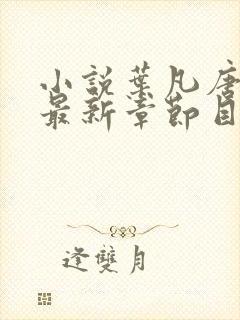 小說葉凡唐
最新章節目
逢雙月